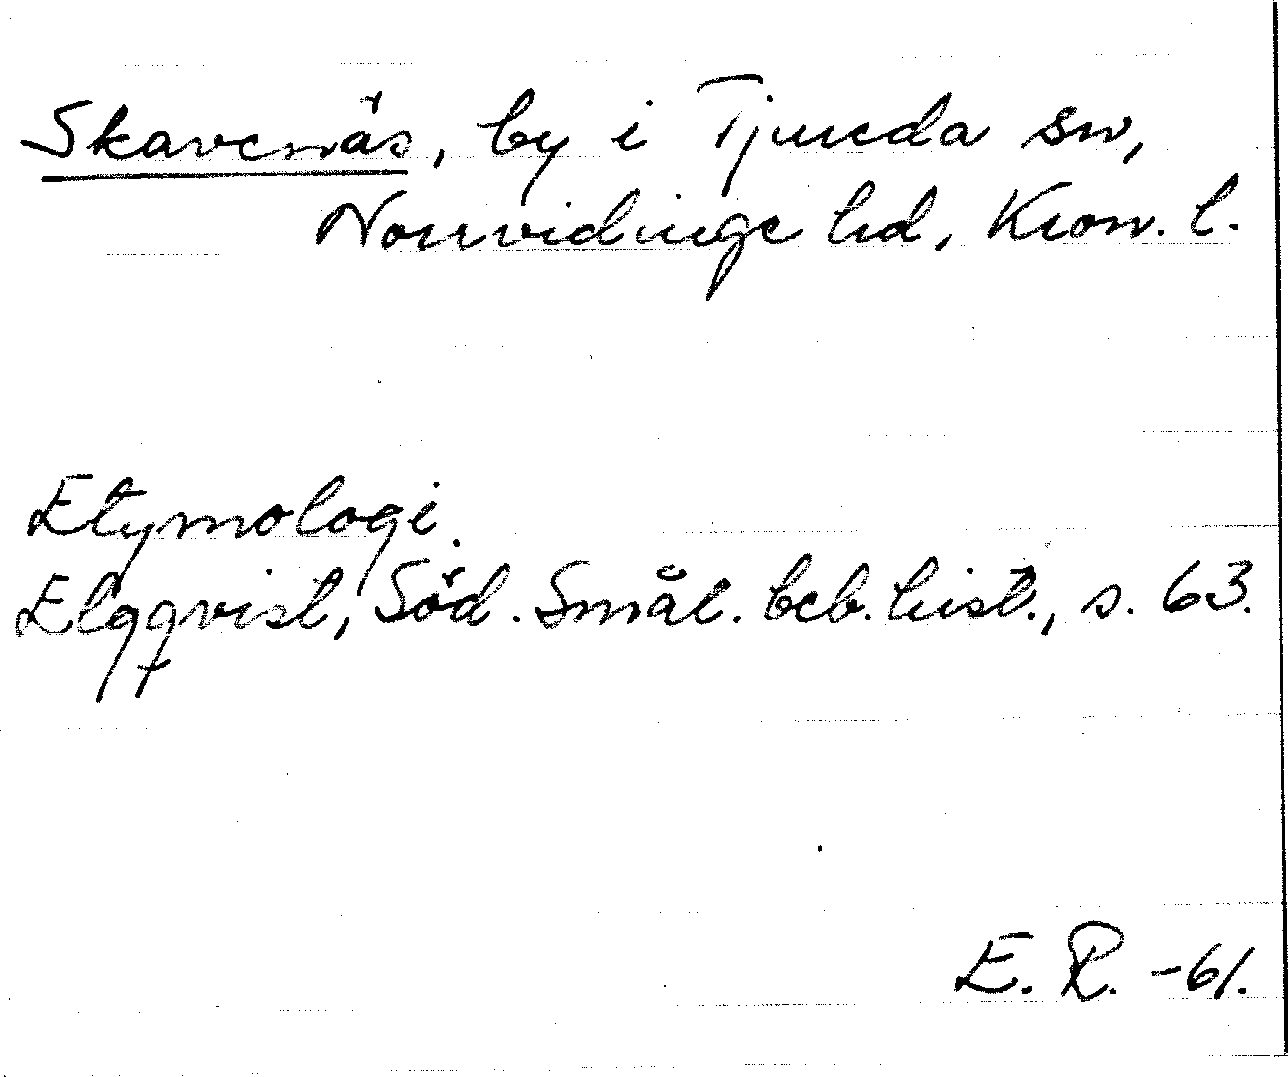 Skavenäs, by i Tjureda sn,
Norrvidinge hd, Kron. l.
Etymologi.
Elgqvist, Söd. Smål. beb. hist., s. 63.
E. R. -61.